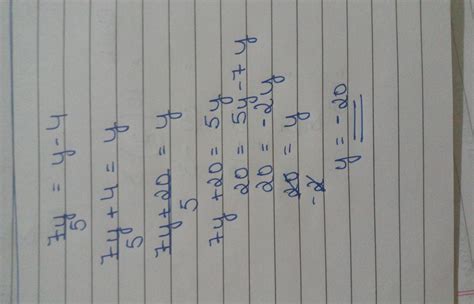 7y/5 = y - 4
7y/5 + 4 = y
7y + 20/5 = y
7y + 20 = 5y
20 = 5y - 7y
20 = -2y
20/-2 = y
y = -20